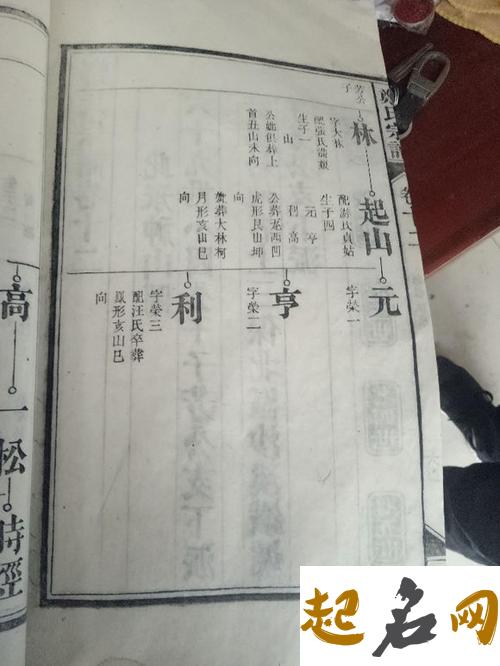 鄭氏宗譜
卷十二
芳公
子
林
字大林
配張氏滿娘
生子一
山
公妣俱葬上
首丑山未向
起山
配游氏貞姑
生子四
元亨
利高
公葬龙西凹
虎形艮山坤
向
妣葬大林柯
月形亥山巳
向
元
字榮一
亨
字榮二
利
字榮三
配汪氏卒葬
形亥山巳
向
高
一松
時經
起名网